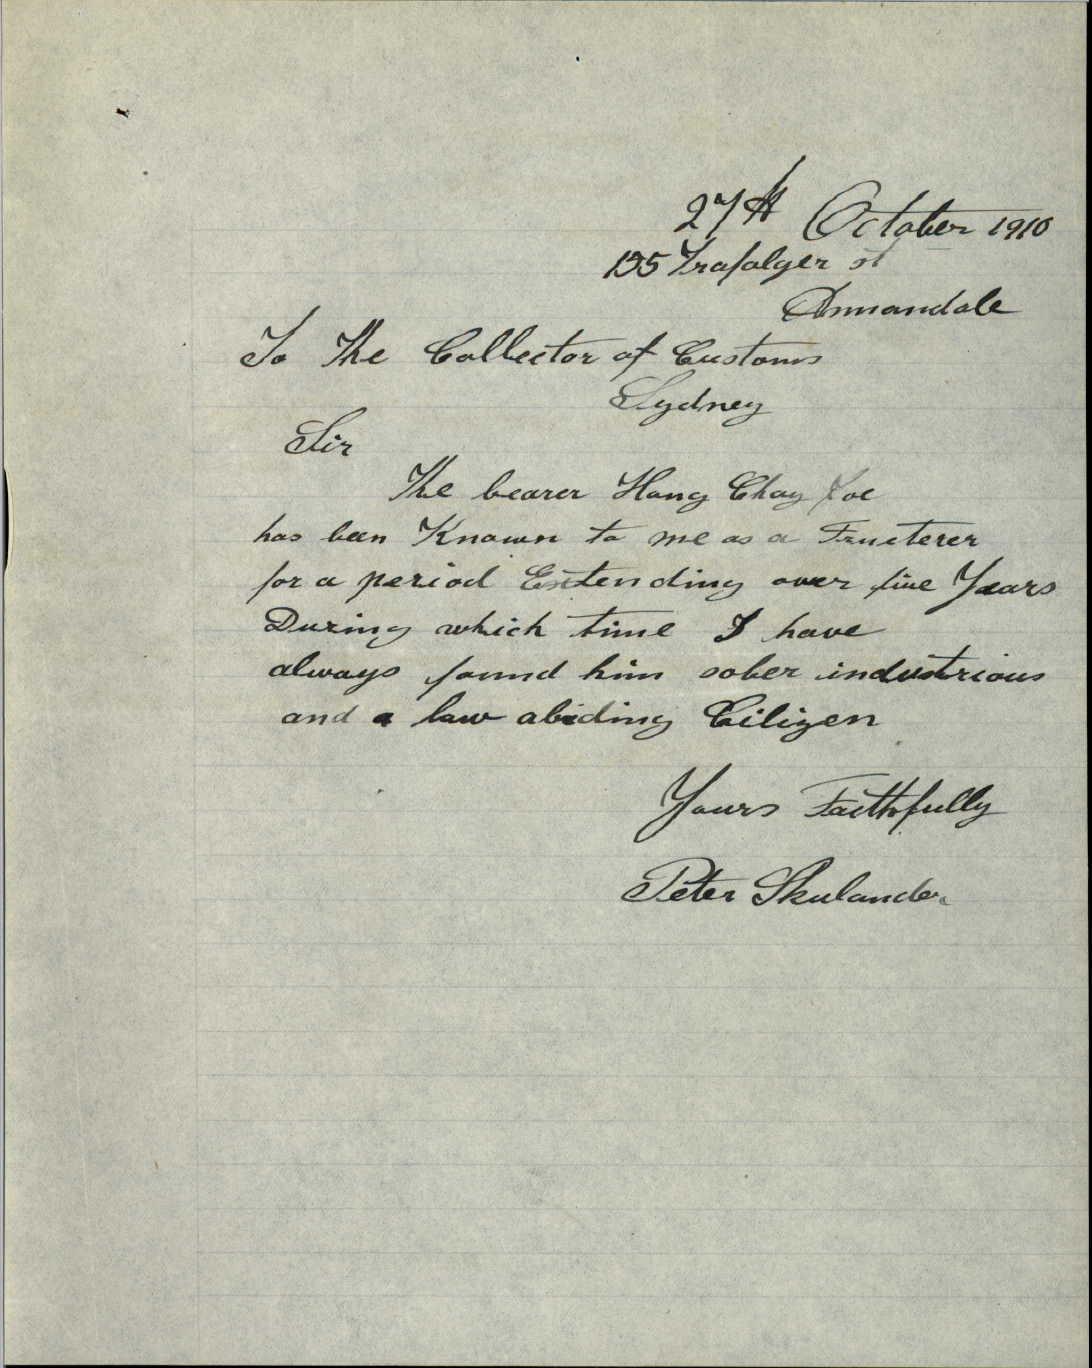 27th October 1910
195 Trafalger st
Annandale
To The Collector of Customs
Sydney
Sir
The bearer Hang Chay
has been Known to me as a Fructerer
for a period Extending over five Years
During which time I have
always found him sober industrious
and a law abiding Citizen
Yours Faithfully
Peter Skulander